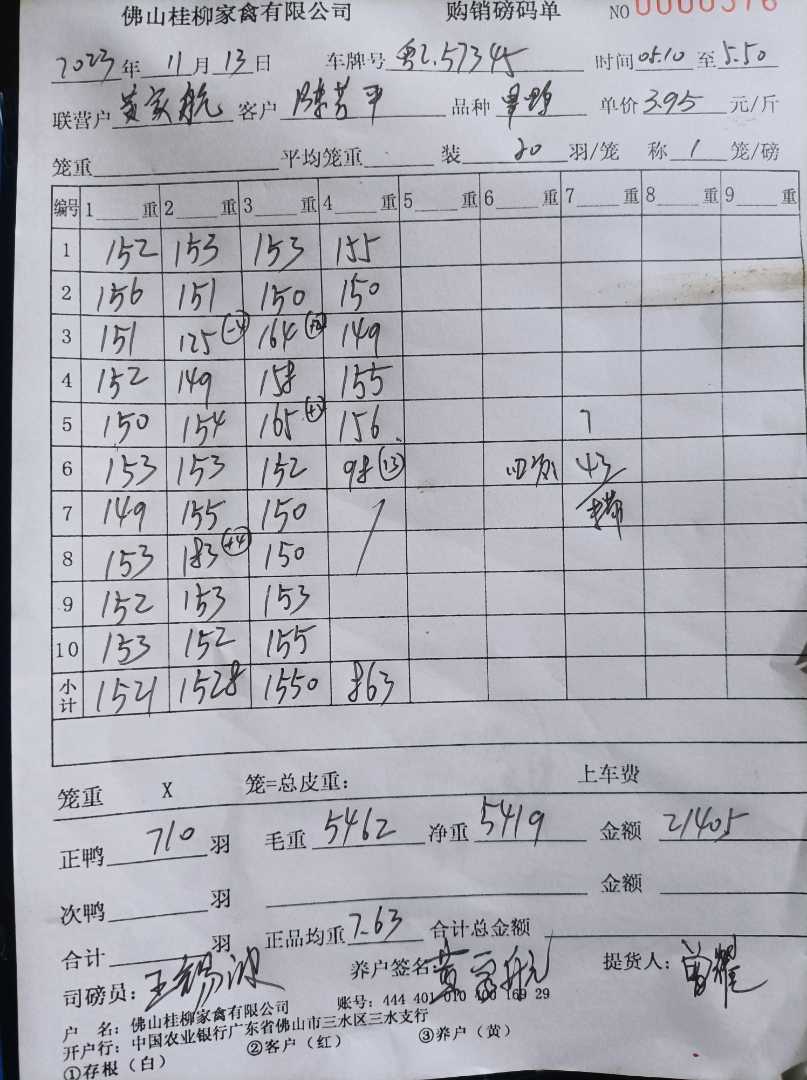 佛山桂柳家禽有限公司 购销磅码单 NO 0000376
2023年 11月 13日 车牌号 粤L57345 时间 05:10 至 5:50
联营户 黄家航 客户 陈芳平 品种 单价 3.95 元/斤
笼重 平均笼重 装 20 羽/笼 称 1 笼/磅
编号 1 重 2 重 3 重 4 重 5 重 6 重 7 重 8 重 9 重
1 152 153 153 155
2 156 151 150 150
3 151 125 (-4) 164 149
4 152 149 158 155
5 150 154 165 156 7
6 153 153 152 98 (13) 43
7 149 155 150 /
8 153 183 (+4) 150
9 152 153 153
10 153 152 155
小计 1521 1528 1550 863
笼重 X 笼=总皮重: 上车费
正鸭 710 羽 毛重 5462 净重 5419 金额 21405
次鸭 羽 金额
合计 羽 正品均重 7.63 合计总金额
司磅员: 王锡波 养户签名: 黄家航 提货人: 曾耀
户 名: 佛山桂柳家禽有限公司 账号: 444 401 010 400 169 29
开户行: 中国农业银行广东省佛山市三水区三水支行
①存根(白) ②客户(红) ③养户(黄)